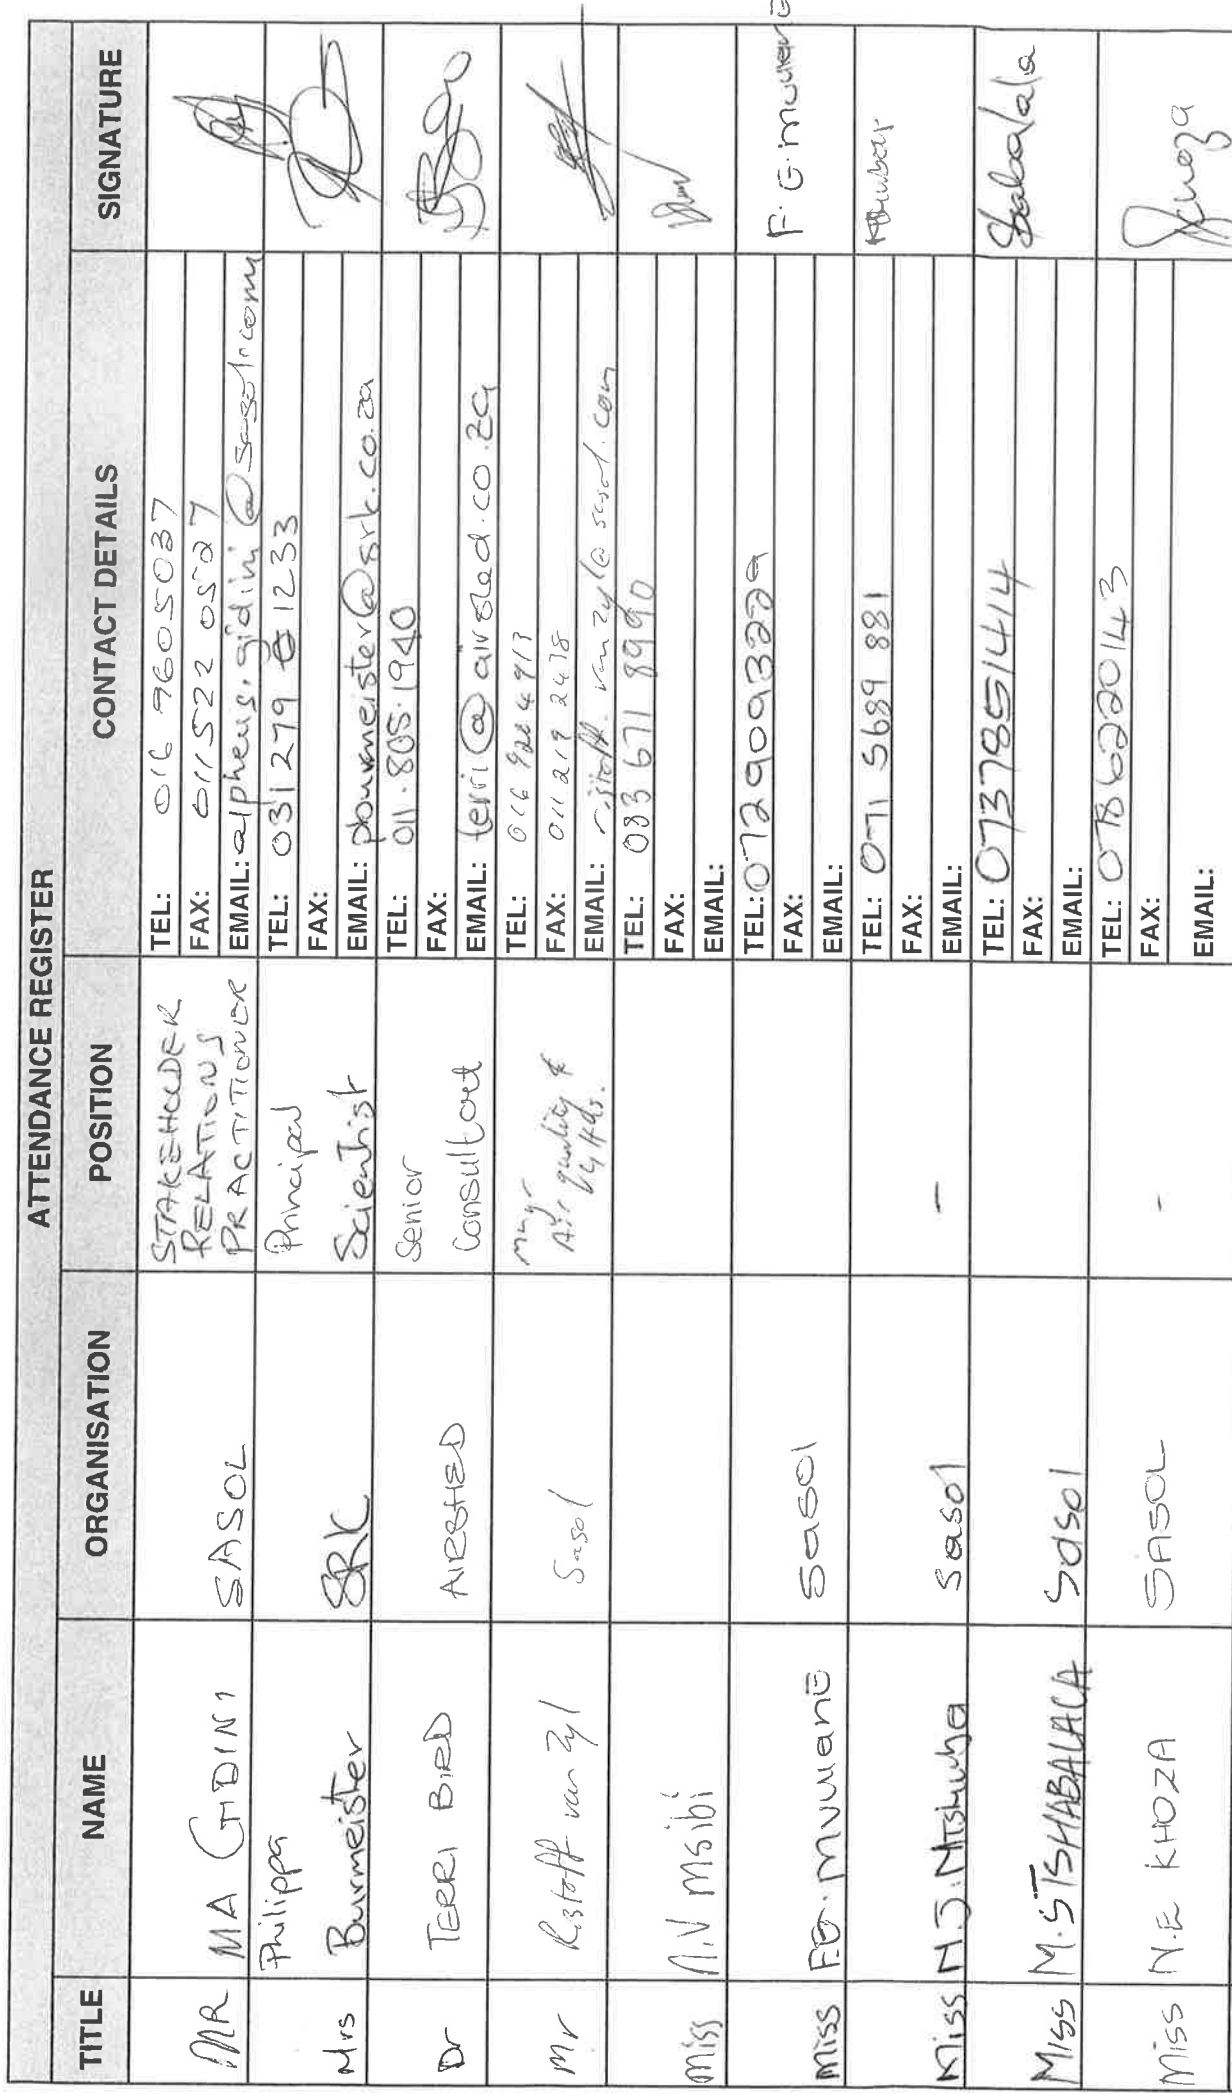 ATTENDANCE REGISTER
TITLE NAME ORGANISATION POSITION CONTACT DETAILS SIGNATURE
MR MA GIDINI SASOL STAKEHOLDER RELATIONS PRACTITIONER
TEL: 016 9605037
FAX: 011522 0527
EMAIL: alpheus.gidini@sasol.com
Mrs Philippa Burmeister SRK Principal Scientist
TEL: 031 279 1233
FAX:
EMAIL: pburmeister@srk.co.za
Dr TERRI BIRD AIRSHED Senior Consultant
TEL: 011.805.1940
FAX:
EMAIL: terri@airshed.co.za
Mr Ristoff van Zyl Sasol Mngr Air quality &
TEL: 016 920 4913
FAX: 011 219 2478
EMAIL: ristoff.vanzyl@sasol.com
Miss N.V Msibi
TEL: 083 671 8990
FAX:
EMAIL:
Miss F.G. Mvulane Sasol
TEL: 0729093229
FAX:
EMAIL:
F. G. Mvulane
Miss N.J. Mtshweba Sasol -
TEL: 071 5689 881
FAX:
EMAIL:
Miss M.S TSHABALALA Sasol
TEL: 0737851414
FAX:
EMAIL:
Tshabalala
Miss N.E KHOZA SASOL -
TEL: 0786220143
FAX:
EMAIL:
Khoza